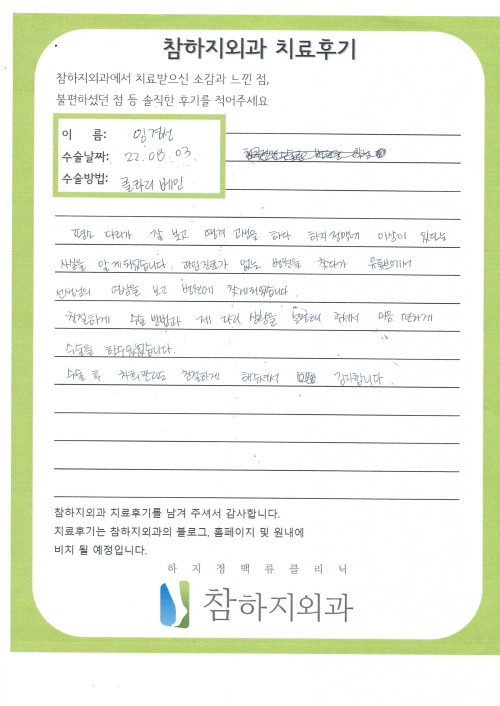 참하지외과 치료후기
참하지외과에서 치료받으신 소감과 느낀 점,
불편하셨던 점 등 솔직한 후기를 적어주세요
이 름: 임경선
수술날짜: 22. 08. 03
수술방법: 클라리 베인
평소 다리가 잘 붓고 땡겨 고생을 하다 하지정맥에 이상이 있다는
사실을 알게되었습니다. 과잉진료가 없는 병원을 찾다가 유튜브에서
선생님의 영상을 보고 병원에 찾게되었습니다.
친절하게 수술 방법과 제 다리 상황을 설명해 주셔서 마음 편하게
수술을 할수있었습니다.
수술 후 처리 친절하게 해주셔서 감사합니다.
참하지외과 치료후기를 남겨 주셔서 감사합니다.
치료후기는 참하지외과의 블로그, 홈페이지 및 원내에
비치 될 예정입니다.
하지정맥류클리닉
참하지외과